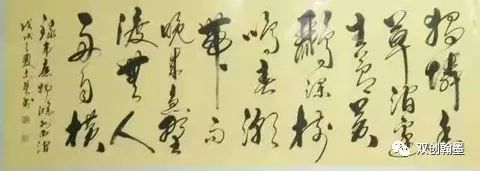 獨憐幽
草澗邊
生上有黄
鸝深樹
鳴春潮
帶雨
晚來急野
渡無人
舟自橫
錄韋應物滁州西澗
戊戌之夏書
双创翰墨